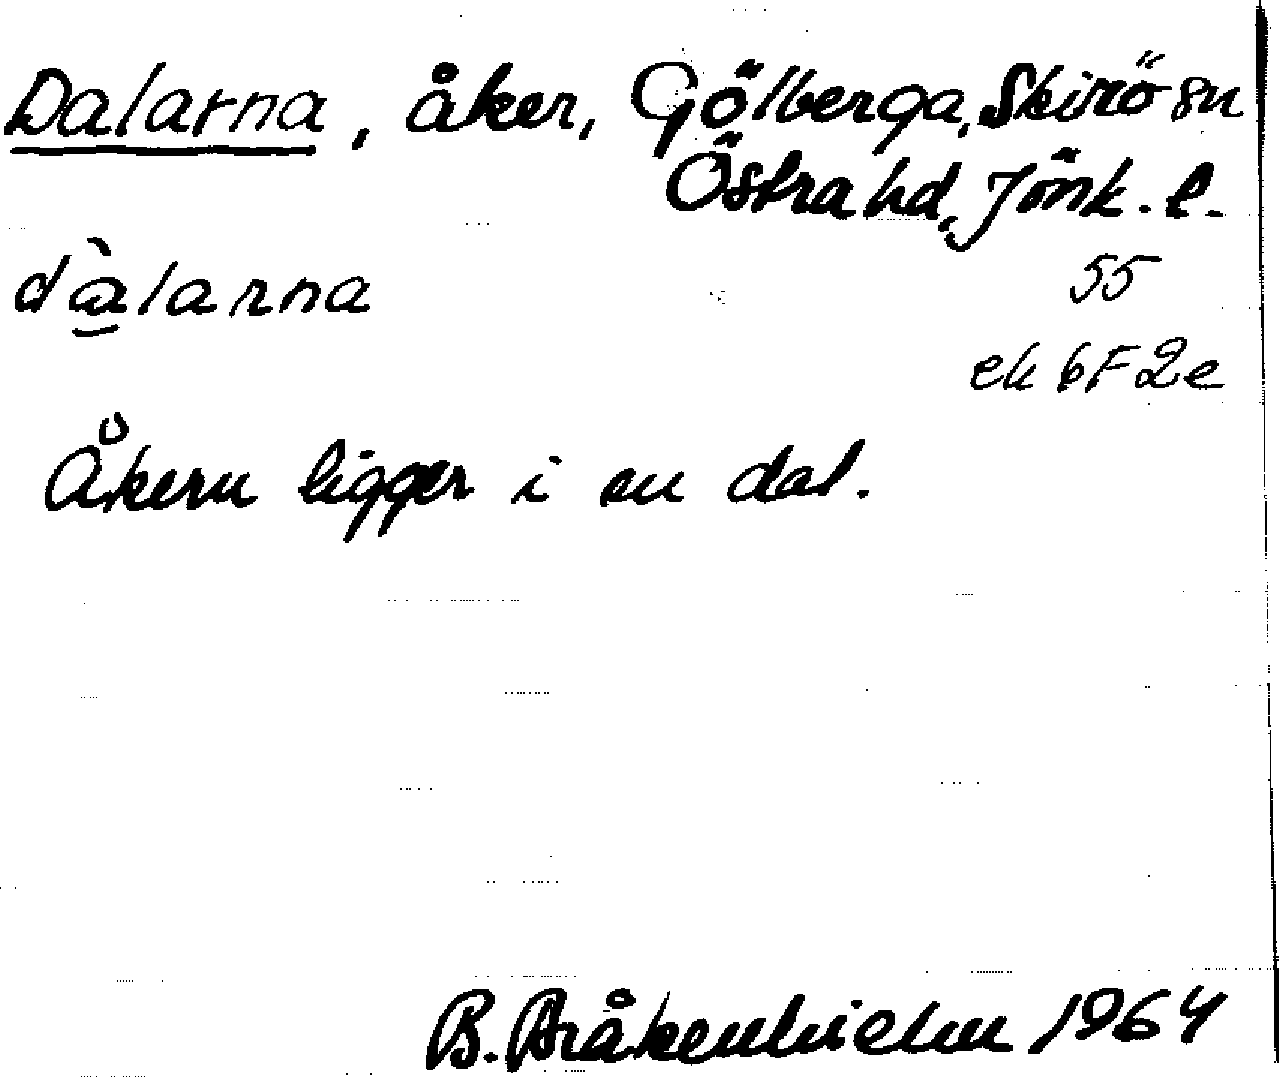 Dalarna, åker, Gölberga, Skirö sn
Östra hd, Jönk. l.
dàlarna
55
ek 6F2e
Åkern ligger i en dal.
B. Bråkenhielm 1964